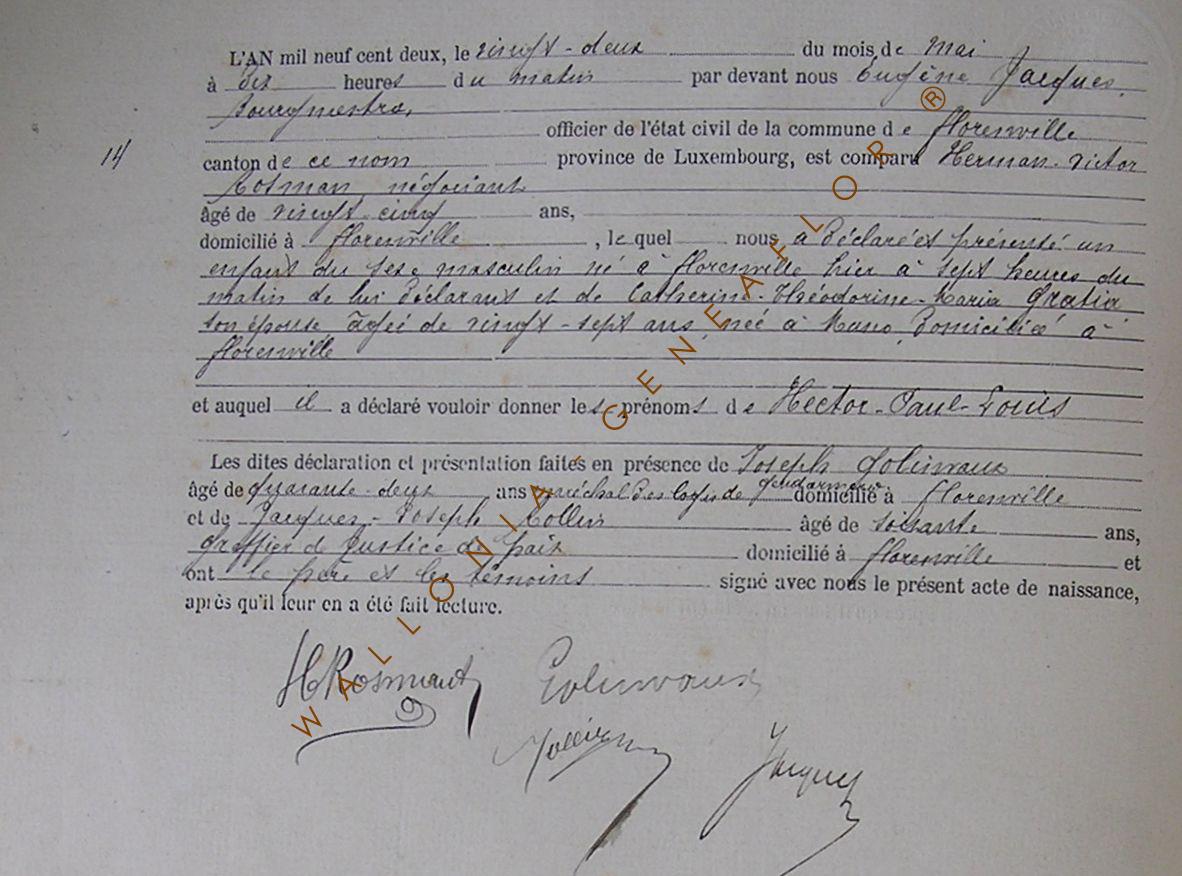 L'AN mil neuf cent deux, le vingt-deux du mois de mai
à dix heures du matin par devant nous Eugène Jacques,
Bourgmestre,
officier de l'état civil de la commune de Florenville
14
canton de ce nom province de Luxembourg, est comparu Herman-Victor
Rosman, négociant
âgé de vingt cinq ans,
domicilié à Florenville, lequel nous a déclaré et présenté un
enfant du sexe masculin né à Florenville hier à sept heures du
matin de lui déclarant et de Catherine-Théodorine-Maria Gratia
son épouse, âgée de vingt-sept ans, née à Muno, domiciliée à
Florenville
et auquel il a déclaré vouloir donner les prénoms de Hector-Paul-Louis
Les dites déclaration et présentation faites en présence de Joseph Golinvaux
âgé de quarante-deux ans maréchal des logis de gendarmerie domicilié à Florenville
et de Jacques-Joseph Collin âgé de soixante ans,
greffier de justice de paix domicilié à Florenville et
ont le père et les témoins signé avec nous le présent acte de naissance,
après qu'il leur en a été fait lecture.
HRosmant Golinvaux
Jacques
WALLONIA-GENEAFLOR®